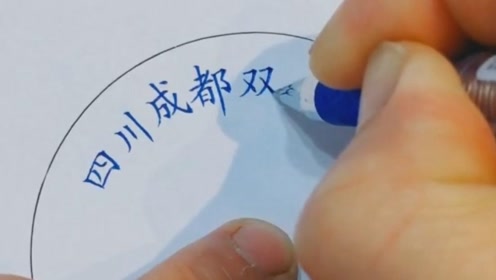 四川成都双